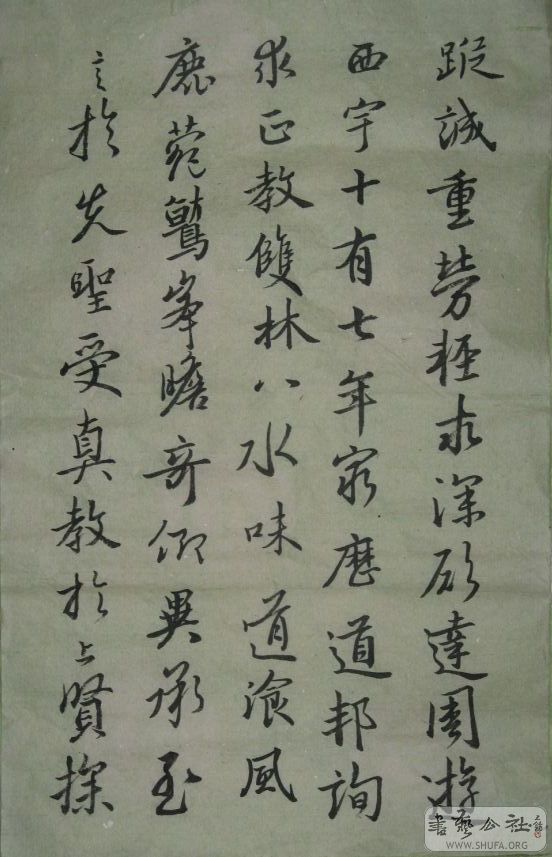 蹤誠重勞輕求深欲達周遊
西宇十有七年窮歷道邦詢
求正教雙林八水味道飡風
鹿菀鷲峯瞻奇仰異承至
言於先聖受真教於上賢探
書藝公社
WWW.SHUFA.ORG